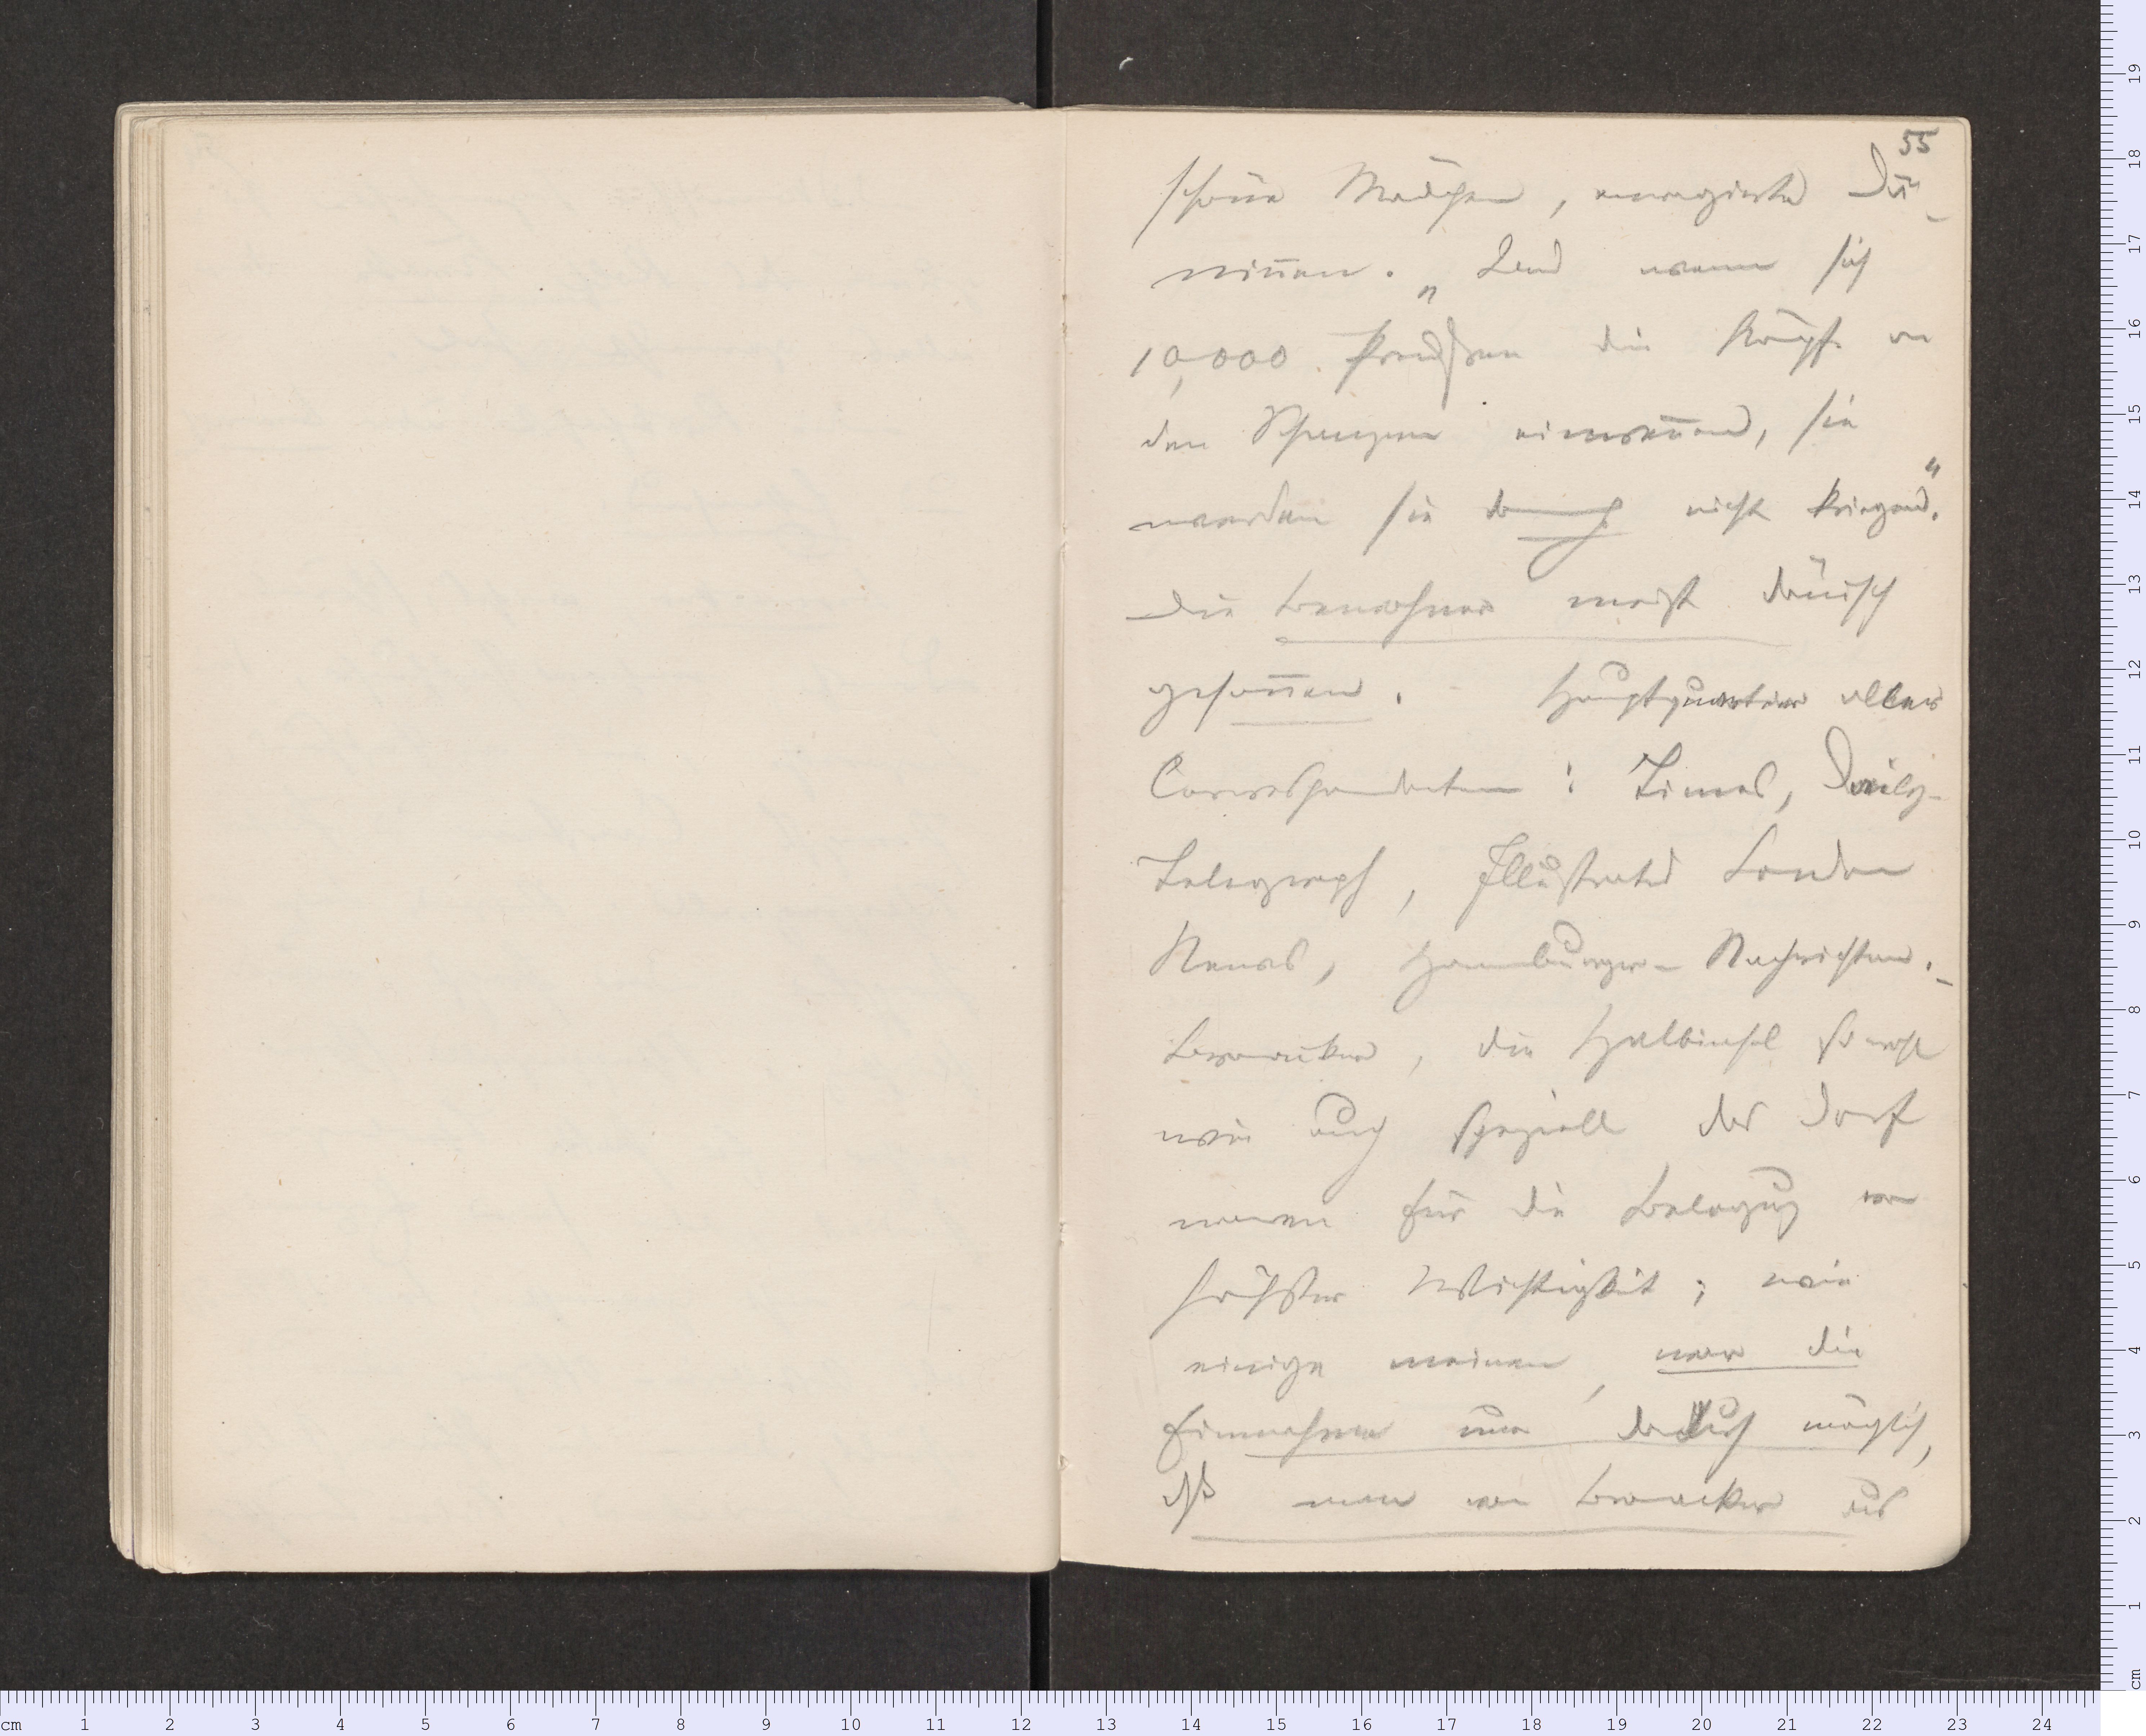 55
schöne Mädchen, enragirte Dä-
ninnen. „Und wenn sich
10,000 Preußen die Köpfe an
den Schanzen einrennen, sie
werden sie doch nicht kriegen.“
Die Bewohner meist dänisch
gesonnen. Hauptquartier aller
Correspondenten: Times, Daily-
Telegraph, Illustrated London
News, Hamburger-Nachrichten. –
Broacker, die Halbinsel sowohl
wie auch speziell das Dorf
waren für die Belagrug von
höchster Wichtigkeit; wie
einige meinen, war die
Einnahme nur dadurch möglich,
daß man von Broacker aus